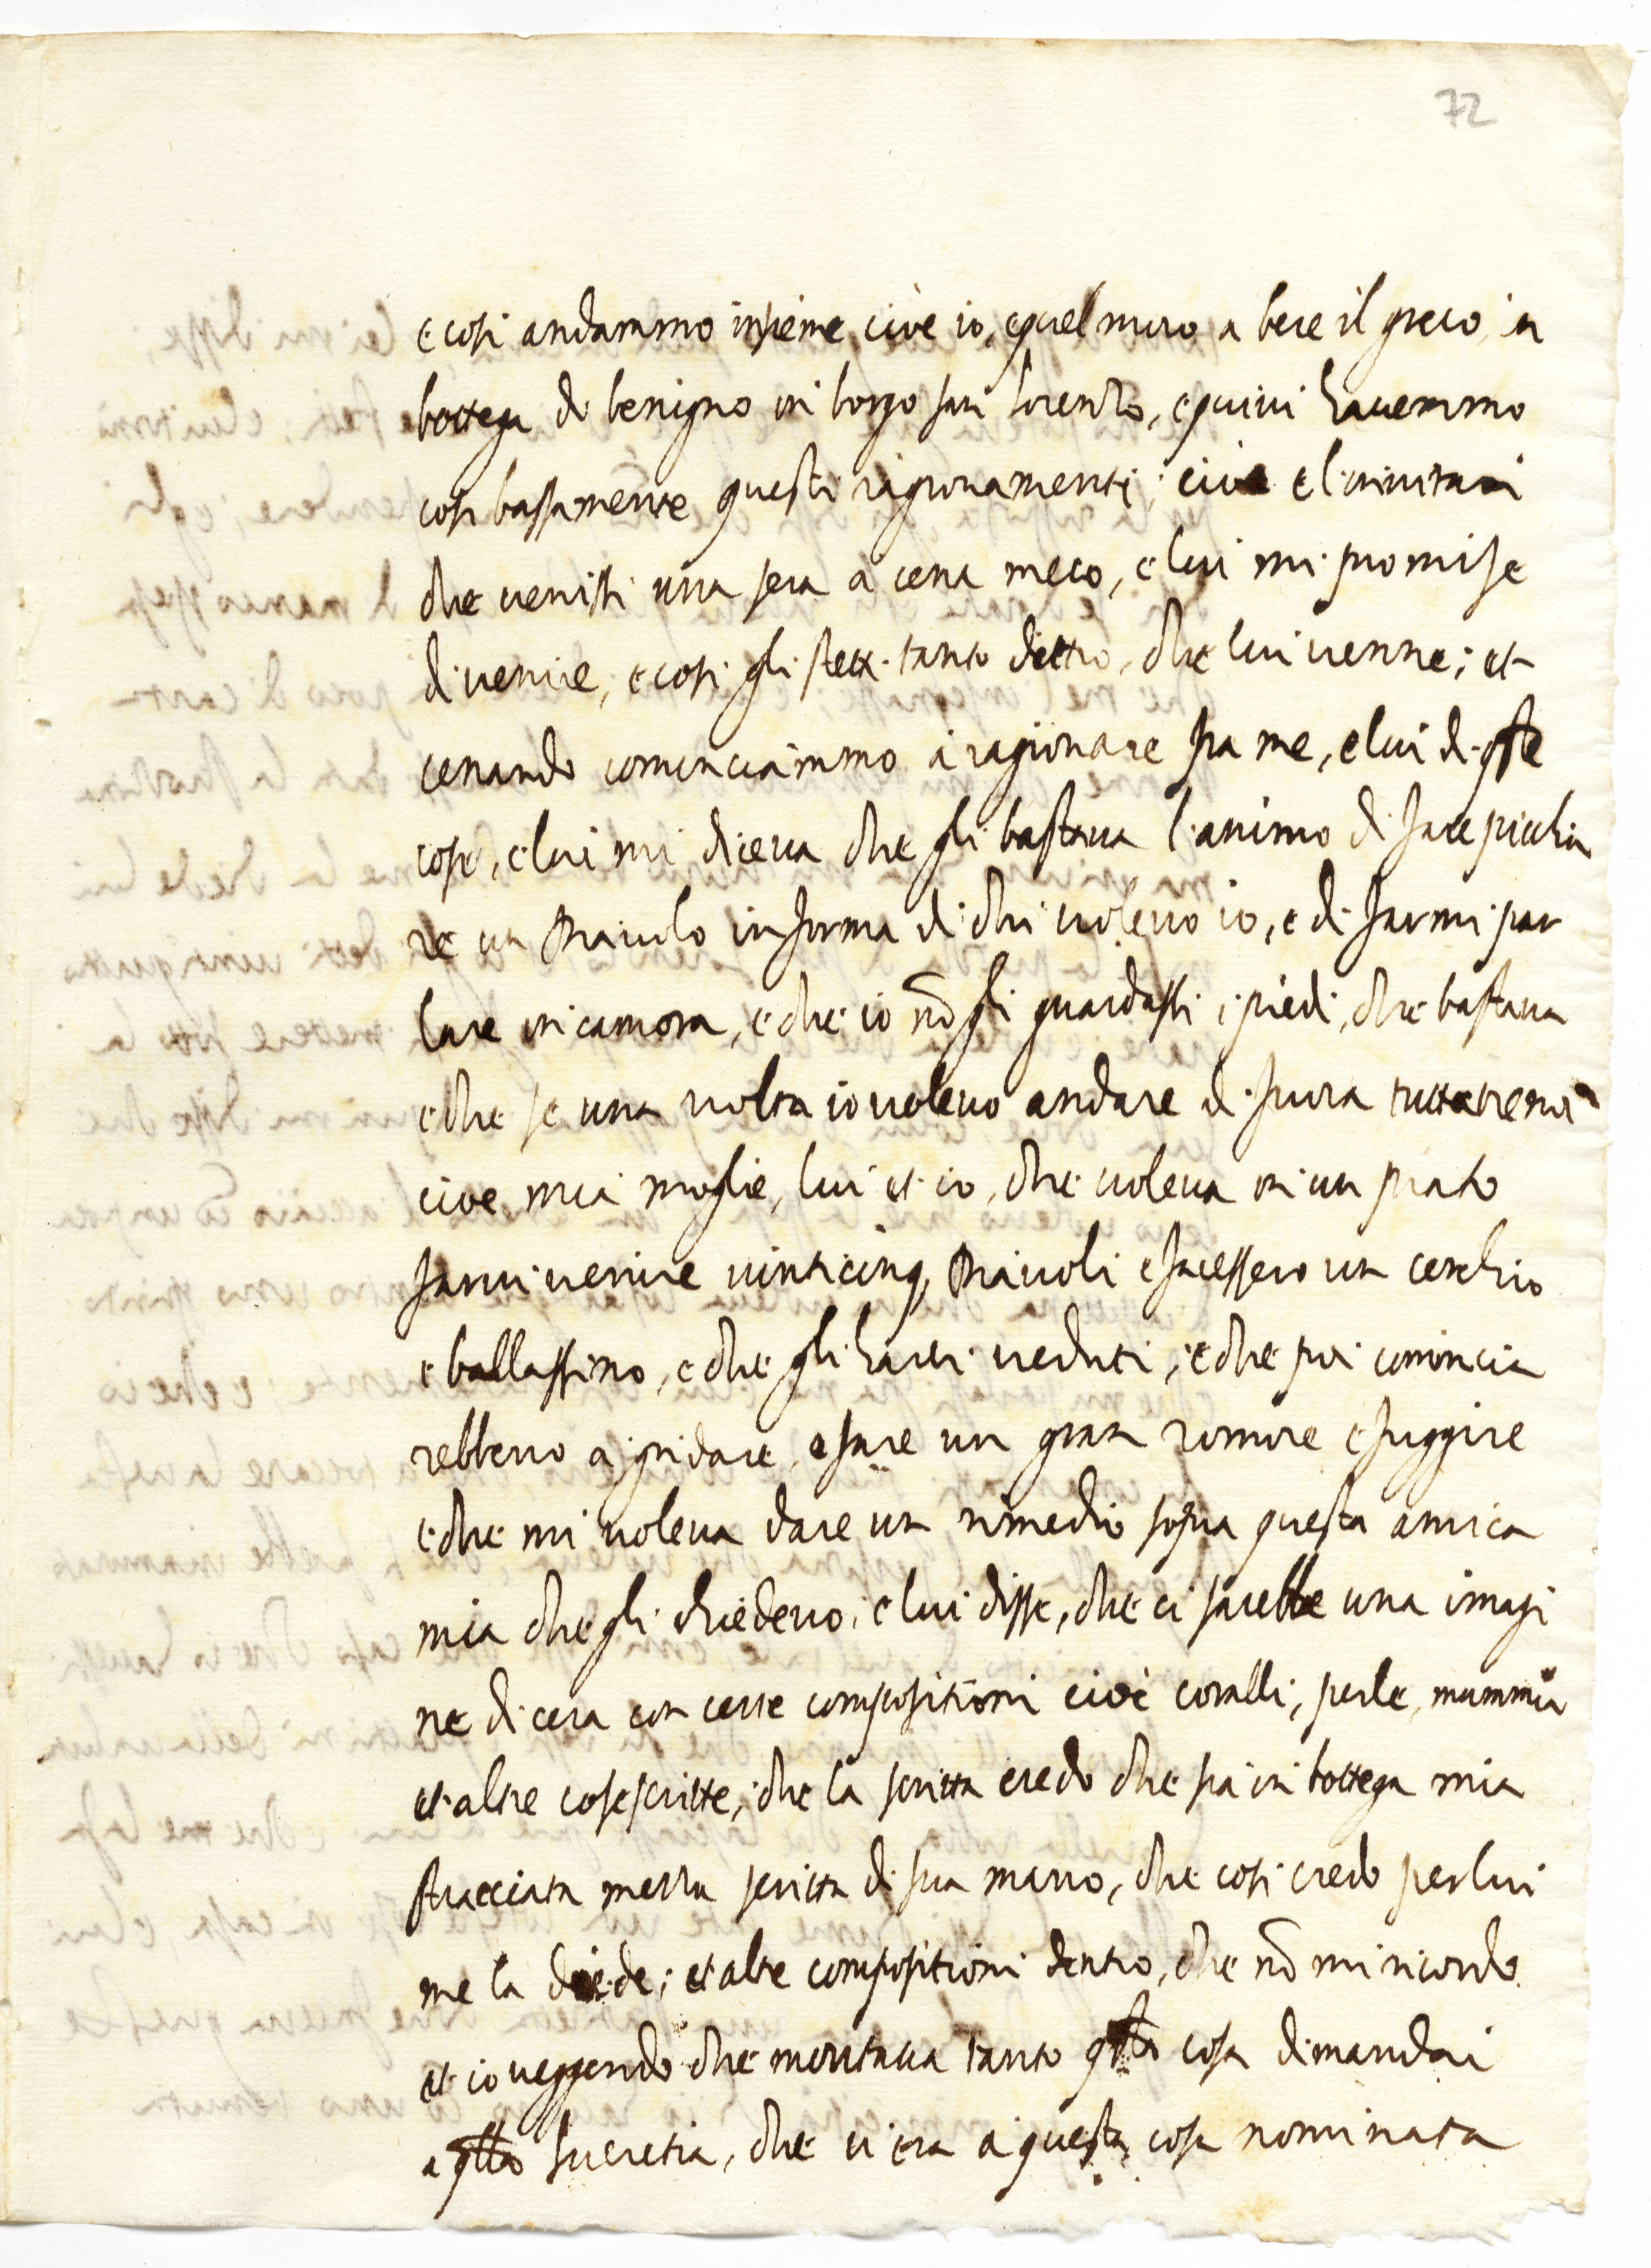 72
e cosi andammo insieme cioè io, e quel muro a bere il greco in
bottega di benigno in borgo san lorenzo, e quivi havemmo
cosi bassamente questi ragionamenti; cioe el'invitai
che venissi una sera à cena meco, e lui mi promise
di venire, e cosi gli stetti tanto dietro, che lui venne; et
cenando cominciammo à ragionare fra me, e lui di qste
cose, e lui mi diceva che gli bastava l'animo di fare picchia
re un diavolo in forma di chi volevo io, e di farmi par
lare in camera, e che io nō gli guardassi i piedi, che bastava
e che se una volta io volevo andare di fuora tutta tre noi
cioe mia moglie, lui et io, che voleva in un prato
farvi venire vinticinq, diavoli e facessero un cerchio
e ballassino, e che gli harei veduti; e che poi comincia
rebbero a gridare, e fare un gran romore e fuggire
e che mi voleva dare un rimedio sopra questa amica
mia che gli chiedevo; e lui disse, che ci farebbe una imagi
ne di cera con certe compositioni cioè coralli, perle, mummia
et altre cose scritte; che la scritta credo che sia in bottega mia
stracciata mezza scritta di sua mano, che cosi credo perlui
me la diede; et altre compositioni dentro, che nō mi ricordo
et io veggendo che montava tanto qsta cosa dimandai
a qlla lucretia, che vi era à questa cosa nominata